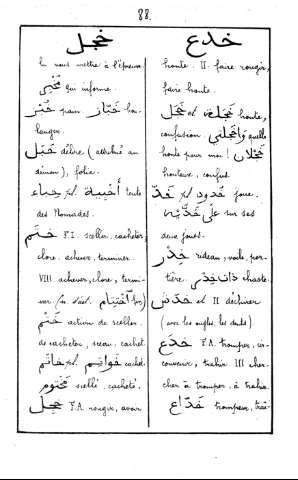 88.
خجل
خدع
le vous mettre à l'épreuve.
مُخْبِر qui informe.
خُبْز pain خَبَّاز bou-
langer.
خَبَل délire (attribué au
démon), folie.
خِبَاء pl. أَخْبِيَة tente
des Nomades.
خَتَمَ F.I. sceller, cacheter
clore, achever, terminer.
VIII. achever, clore, termi-
ner (n. d'act. اخْتِتَام).
خَتْم action de sceller.
de cacheter, sceau, cachet.
خَاتَم pl. خَوَاتِم cachet.
مَخْتُوم scellé, cacheté.
خَجِلَ F.A. rougir, avoir
honte. II. faire rougir,
faire honte.
خَجَل et خَجْلَة honte,
confusion وَاخَجْلَتِي quelle
honte pour moi! خَجْلَان
honteux, confus.
خَدّ pl. خُدُود joue.
عَلَى خَدَّيْهِ sur ses
deux joues.
خِدْر rideau, voile, por-
tière. ذَات خِدْر chaste.
خَدَشَ et II déchirer
(avec les ongles, les dents).
خَدَعَ F.A. tromper, cir-
convenir, trahir III cher-
cher à tromper, à trahir.
خَدَّاع trompeur, traî-